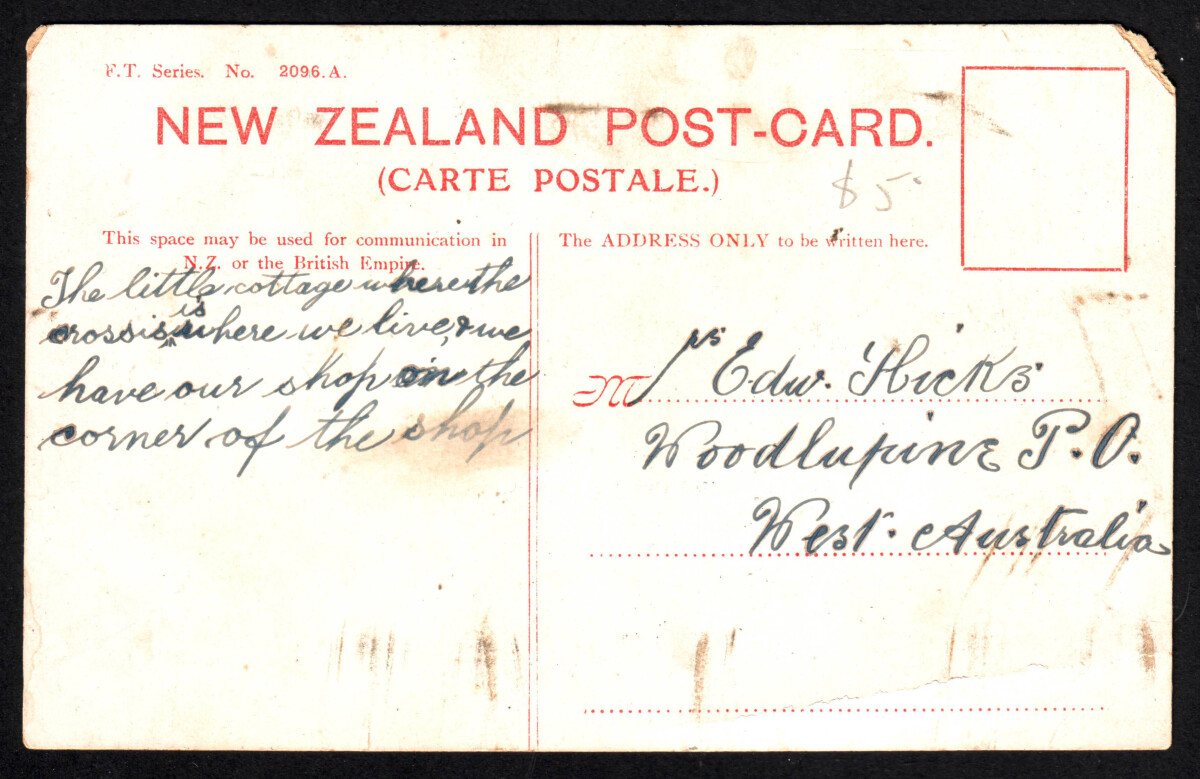 F.T. Series. No. 2096.A.
NEW ZEALAND POST-CARD.
(CARTE POSTALE.)
$5
This space may be used for communication in
N.Z. or the British Empire.
The ADDRESS ONLY to be written here.
The little cottage where the
cross is is where we live, & we
have our shop on the
corner of the shop
Mrs Edw. Hicks
Woodlupine P.O.
West. Australia